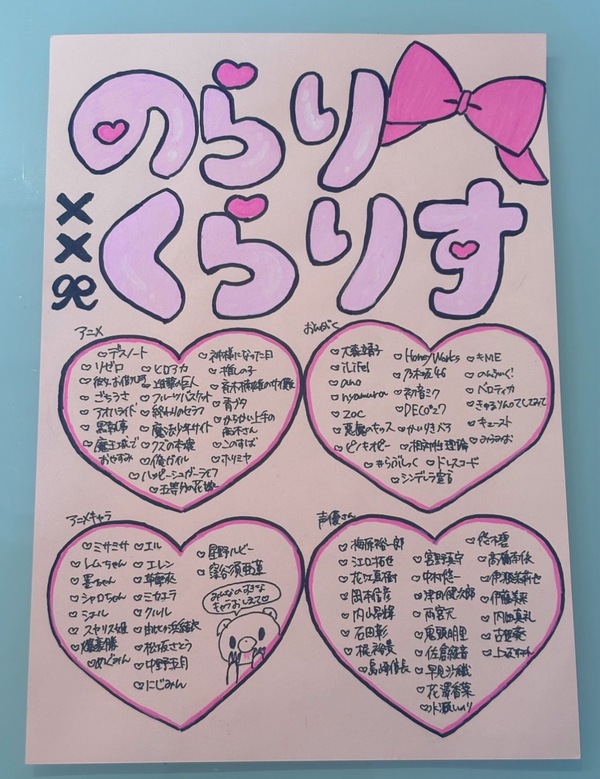 のらり
くらりす
アニメ
♡デスノート
♡リゼロ
♡彼女、お借りします
♡ごちうさ
♡アオハライド
♡黒執事
♡魔王城で
おやすみ
♡ヒロアカ
♡進撃の巨人
♡フルーツバスケット
♡終わりのセラフ
♡魔法少女サイト
♡クズの本懐
♡俺ガイル
♡ハッピーシュガーライフ
♡五等分の花嫁
♡神様になった日
♡推しの子
♡青ブタ
♡からかい上手の
高木さん
♡このすば
♡ホリミヤ
おんがく
♡大森靖子
♡iLiFE!
♡ano
♡nyamura
♡ZOC
♡悪魔のキッス
♡ピノキオピー
♡HoneyWorks
♡乃木坂46
♡初音ミク
♡DECO*27
♡かいりきベア
♡相対性理論
♡きらぶしっく
♡ドレスコード
♡シンデレラ宣言
♡キME
♡のんふぃく!
♡ベロティカ
♡きゅるりんってしてみて
♡キュースト
♡みらみお
アニメキャラ
♡ミサミサ
♡レムちゃん
♡墨ちゃん
♡シャロちゃん
♡シエル
♡スヤリス姫
♡爆豪勝
♡めぐみん
♡エル
♡エレン
♡草摩衣
♡ミカエラ
♡クルル
♡由比ヶ浜結衣
♡松坂さとう
♡中野五月
♡にじみん
♡星野ルビー
♡窪谷須亜蓮
みんなのすきな
キャラおしえて♡
声優さん
♡梅原裕一郎
♡江口拓也
♡花江夏樹
♡岡本信彦
♡内山昂輝
♡石田彰
♡梶裕貴
♡島﨑信長
♡宮野真守
♡中村悠一
♡津田健次郎
♡雨宮天
♡鬼頭明里
♡佐倉綾音
♡早見沙織
♡花澤香菜
♡水瀬いのり
♡悠木碧
♡高橋李依
♡伊瀬茉莉也
♡伊藤美来
♡内田真礼
♡古賀葵
♡上坂すみれ